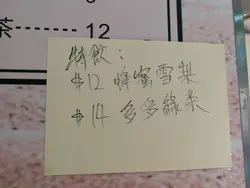 茶 ------- 12
特飲：
$12 蜂蜜雪梨
$14 多多綠茶